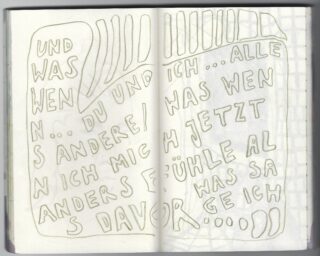 UND
WAS
WEN
N... DU UND ICH... ALLE
S ANDERE! WAS WEN
N ICH MICH JETZT
ANDERS FÜHLE AL
S DAVOR WAS SA
GE ICH
....,))